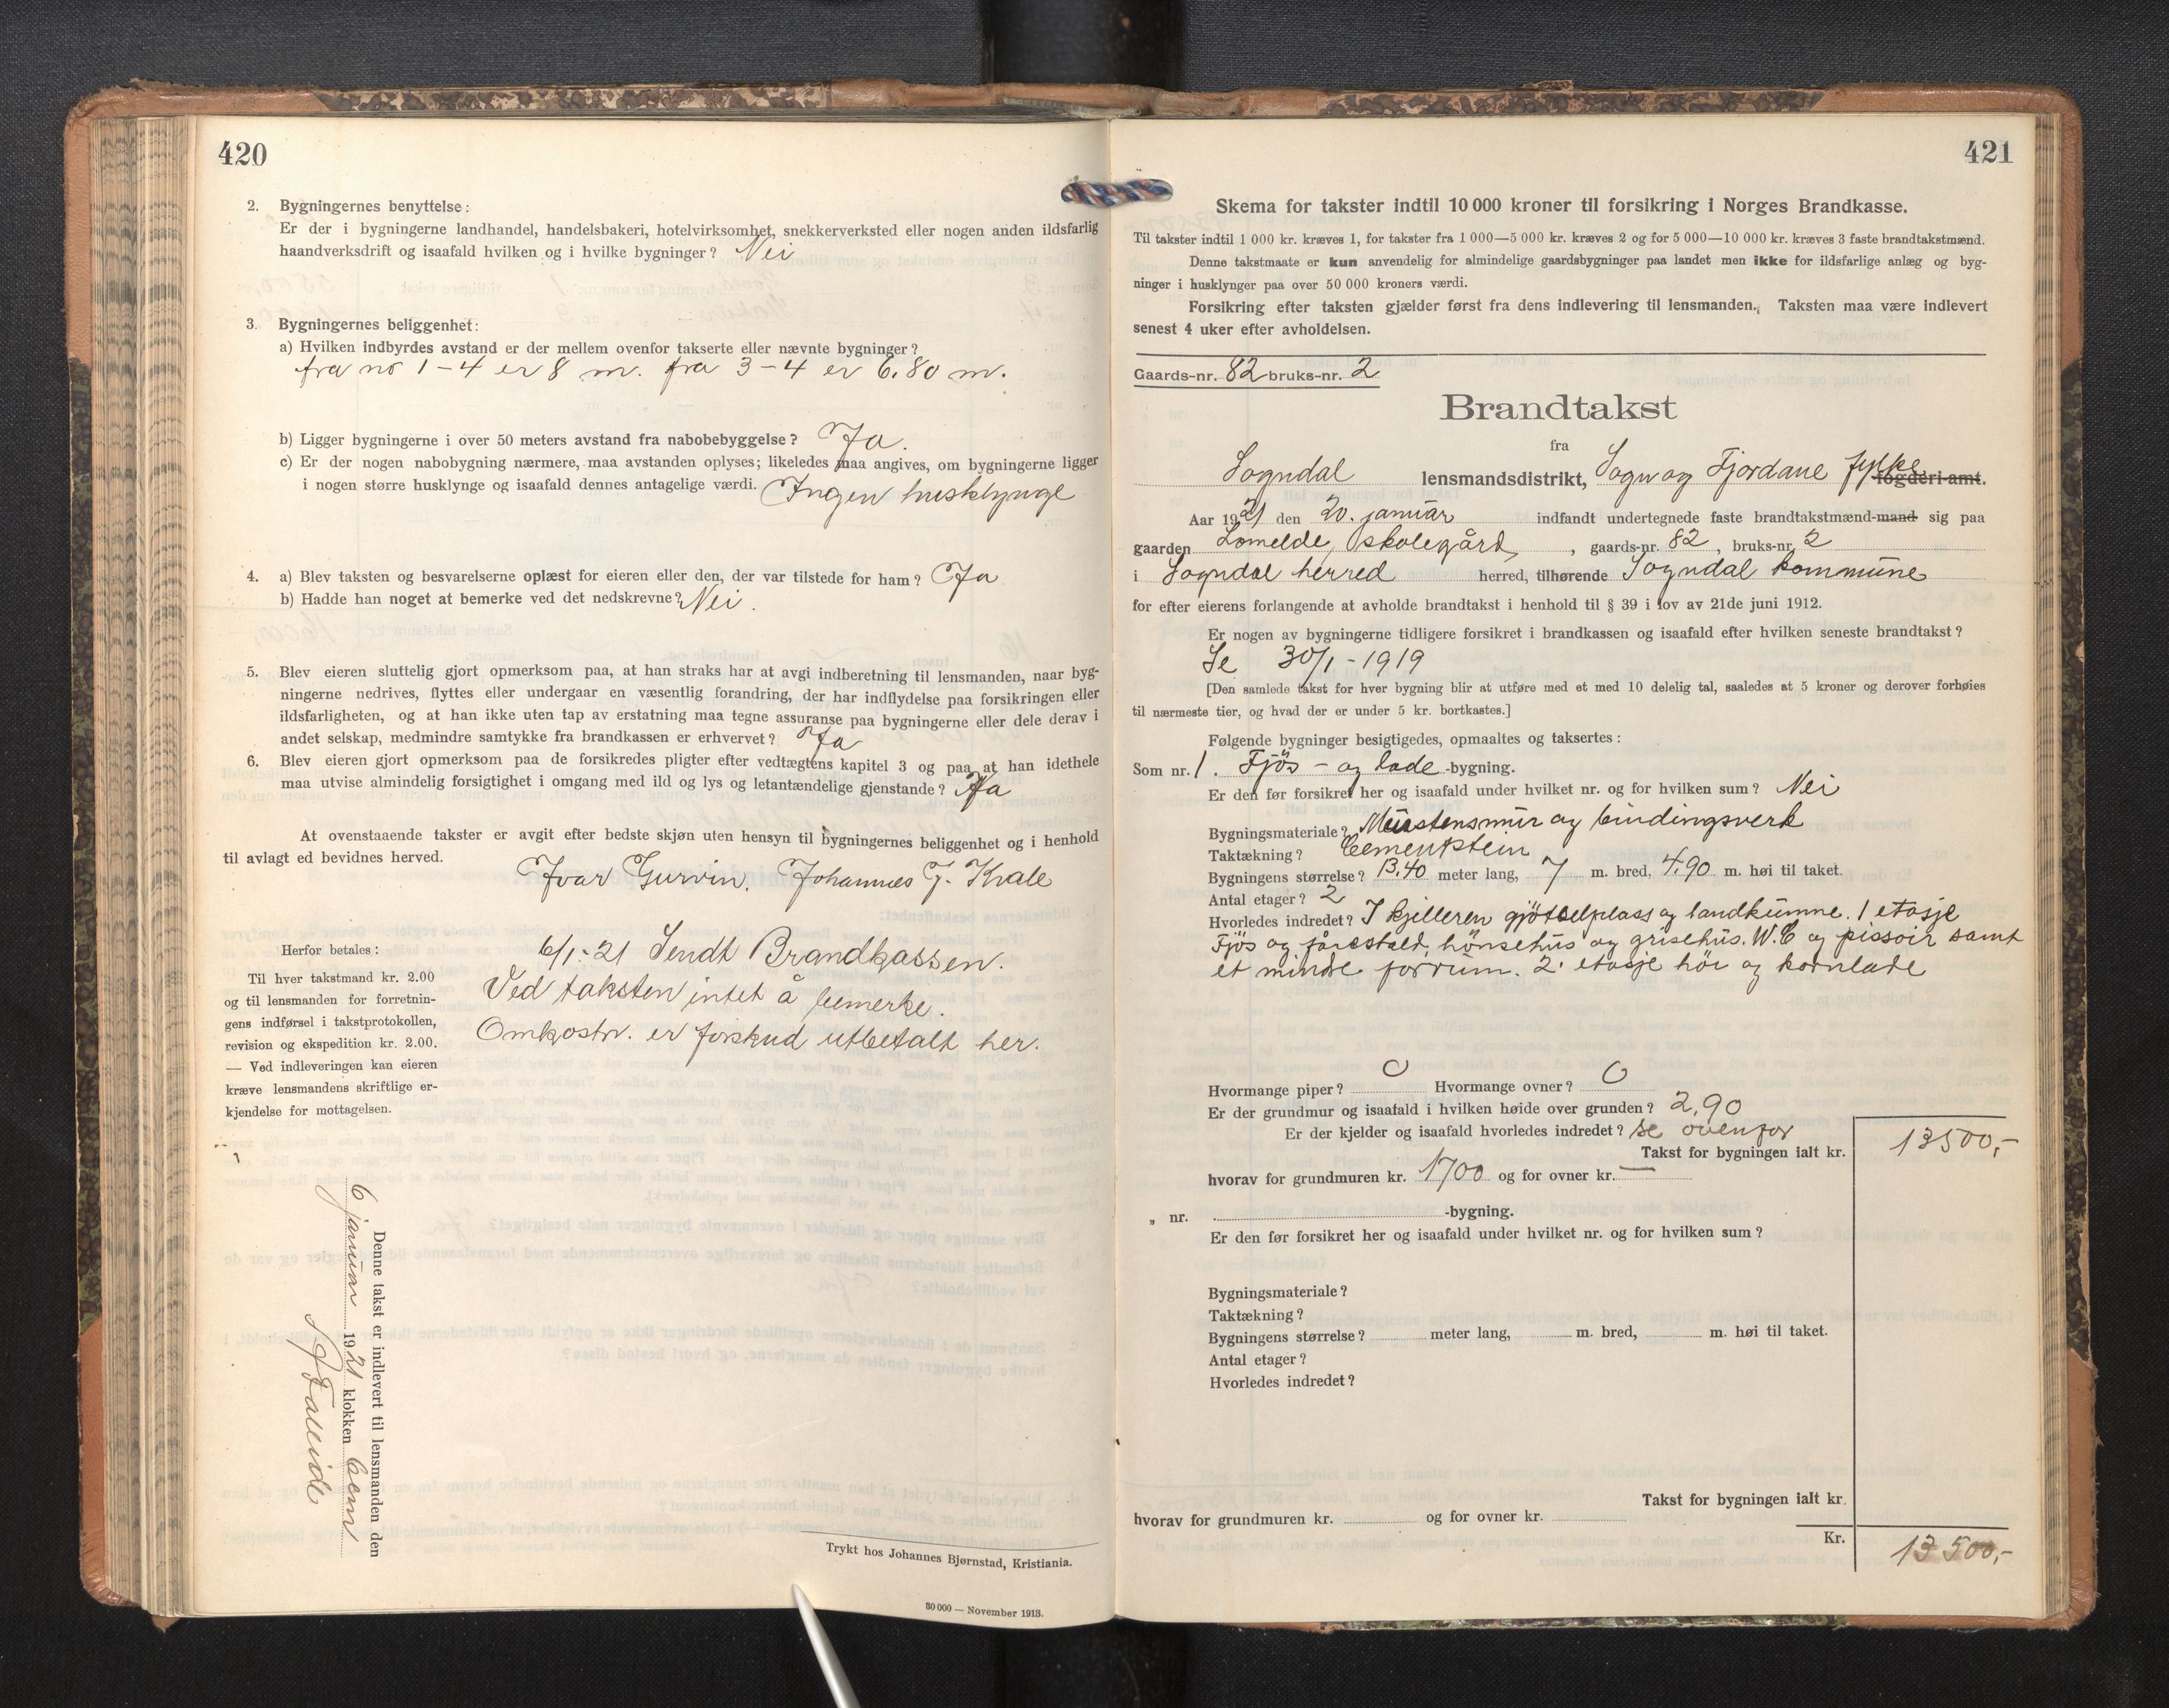 420
2. Bygningernes benyttelse:
Er der i bygningerne landhandel, handelsbakeri, hotelvirksomhet, snekkerverksted eller nogen anden ildsfarlig
haandverksdrift og isaafald hvilken og i hvilke bygninger? Nei
3. Bygningernes beliggenhet:
a) Hvilken indbyrdes avstand er der mellem ovenfor takserte eller nævnte bygninger?
fra no 1-4 er 8 m. fra 3-4 er 6.80 m.
b) Ligger bygningerne i over 50 meters avstand fra nabobebyggelse? Ja.
c) Er der nogen nabobygning nærmere, maa avstanden oplyses; likeledes maa angives, om bygningerne ligger
i nogen større husklynge og isaafald dennes antagelige værdi. Ingen husklynge
4. a) Blev taksten og besvarelserne oplæst for eieren eller den, der var tilstede for ham? Ja
b) Hadde han noget at bemerke ved det nedskrevne? Nei.
5. Blev eieren sluttelig gjort opmerksom paa, at han straks har at avgi indberetning til lensmanden, naar byg-
ningerne nedrives, flyttes eller undergaar en væsentlig forandring, der har indflydelse paa forsikringen eller
ildsfarligheten, og at han ikke uten tap av erstatning maa tegne assuranse paa bygningerne eller dele derav i
andet selskap, medmindre samtykke fra brandkassen er erhvervet? Ja
6. Blev eieren gjort opmerksom paa de forsikredes pligter efter vedtægtens kapitel 3 og paa at han idethele
maa utvise almindelig forsigtighet i omgang med ild og lys og letantændelige gjenstande? Ja
At ovenstaaende takster er avgit efter bedste skjøn uten hensyn til bygningernes beliggenhet og i henhold
til avlagt ed bevidnes herved.
Ivar Gurvin. Johannes J. Kvale
Herfor betales:
Til hver takstmand kr. 2.00
og til lensmanden for forretnin-
gens indførsel i takstprotokollen,
revision og ekspedition kr. 2.00.
— Ved indleveringen kan eieren
kræve lensmandens skriftlige er-
kjendelse for mottagelsen.
6/1-21 Sendt Brandkassen.
Ved taksten intet å bemerke.
Omkostn. er forskud utbetalt her.
Denne takst er indlevert til lensmanden den
6 januar 1921 klokken 6 em
Falleide
Trykt hos Johannes Bjørnstad, Kristiania.
30 000 — November 1913.
421
Skema for takster indtil 10 000 kroner til forsikring i Norges Brandkasse.
Til takster indtil 1 000 kr. kræves 1, for takster fra 1 000—5 000 kr. kræves 2 og for 5 000—10 000 kr. kræves 3 faste brandtakstmænd.
Denne takstmaate er kun anvendelig for almindelige gaardsbygninger paa landet men ikke for ildsfarlige anlæg og byg-
ninger i husklynger paa over 50 000 kroners værdi.
Forsikring efter taksten gjælder først fra dens indlevering til lensmanden. Taksten maa være indlevert
senest 4 uker efter avholdelsen.
Gaards-nr. 82 bruks-nr. 2
Brandtakst
fra
Sogndal lensmandsdistrikt, Sogn og Fjordane fylke fogderi-amt.
Aar 1921 den 20. januar indfandt undertegnede faste brandtakstmænd-mand sig paa
gaarden Lomelde, skolegård, gaards-nr. 82, bruks-nr. 2
i Sogndal herred herred, tilhørende Sogndal kommune
for efter eierens forlangende at avholde brandtakst i henhold til § 39 i lov av 21de juni 1912.
Er nogen av bygningerne tidligere forsikret i brandkassen og isaafald efter hvilken seneste brandtakst?
Se 30/1-1919
[Den samlede takst for hver bygning blir at utføre med et med 10 delelig tal, saaledes at 5 kroner og derover forhøies
til nærmeste tier, og hvad der er under 5 kr. bortkastes.]
Følgende bygninger besigtigedes, opmaaltes og taksertes:
Som nr. 1. Fjös- og lade -bygning.
Er den før forsikret her og isaafald under hvilket nr. og for hvilken sum? Nei
Bygningsmateriale? Murstensmur og bindingsverk
Taktækning? Cementstein
Bygningens størrelse? 13.40 meter lang, 7 m. bred, 4.90 m. høi til taket.
Antal etager? 2
Hvorledes indredet? I kjelleren gjötselplass og landkumme. 1 etasje
Fjös og fårestald, hönsehus og grisehus. W.C og pissoir samt
et mindre forrum. 2. etasje höi og kornlade
Hvormange piper? 0 Hvormange ovner? 0
Er der grundmur og isaafald i hvilken høide over grunden? 2,90
Er der kjelder og isaafald hvorledes indredet? se ovenfor
Takst for bygningen ialt kr. 13500,-
hvorav for grundmuren kr. 1700 og for ovner kr. —
„ nr. -bygning.
Er den før forsikret her og isaafald under hvilket nr. og for hvilken sum?
Bygningsmateriale?
Taktækning?
Bygningens størrelse? meter lang, m. bred, m. høi til taket.
Antal etager?
Hvorledes indredet?
Takst for bygningen ialt kr.
hvorav for grundmuren kr. og for ovner kr.
Kr. 13 500,-